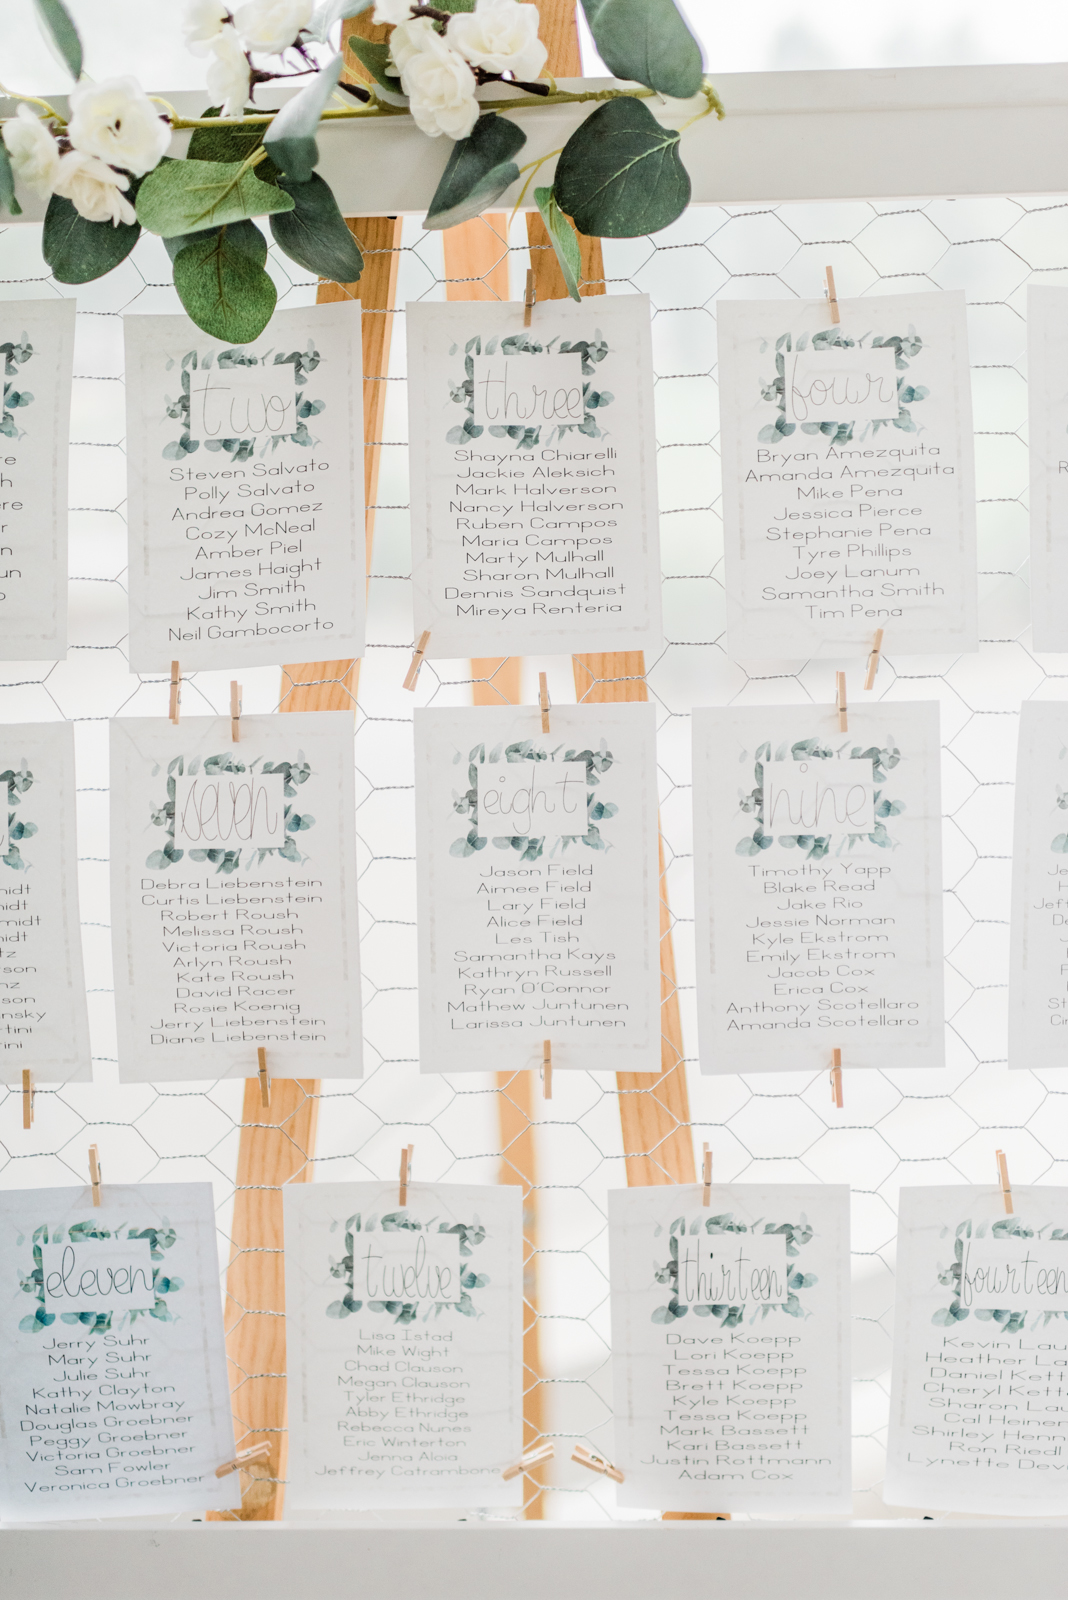 two
Steven Salvato
Polly Salvato
Andrea Gomez
Cozy McNeal
Amber Piel
James Haight
Jim Smith
Kathy Smith
Neil Gambocorto
three
Shayna Chiarelli
Jackie Aleksich
Mark Halverson
Nancy Halverson
Ruben Campos
Maria Campos
Marty Mulhall
Sharon Mulhall
Dennis Sandquist
Mireya Renteria
four
Bryan Amezquita
Amanda Amezquita
Mike Pena
Jessica Pierce
Stephanie Pena
Tyre Phillips
Joey Lanum
Samantha Smith
Tim Pena
seven
Debra Liebenstein
Curtis Liebenstein
Robert Roush
Melissa Roush
Victoria Roush
Arlyn Roush
Kate Roush
David Racer
Rosie Koenig
Jerry Liebenstein
Diane Liebenstein
eight
Jason Field
Aimee Field
Lary Field
Alice Field
Les Tish
Samantha Kays
Kathryn Russell
Ryan O'Connor
Mathew Juntunen
Larissa Juntunen
nine
Timothy Yapp
Blake Read
Jake Rio
Jessie Norman
Kyle Ekstrom
Emily Ekstrom
Jacob Cox
Erica Cox
Anthony Scotellaro
Amanda Scotellaro
eleven
Jerry Suhr
Mary Suhr
Julie Suhr
Kathy Clayton
Natalie Mowbray
Douglas Groebner
Peggy Groebner
Victoria Groebner
Sam Fowler
Veronica Groebner
twelve
Lisa Istad
Mike Wight
Chad Clauson
Megan Clauson
Tyler Ethridge
Abby Ethridge
Rebecca Nunes
Eric Winterton
Jenna Aloia
Jeffrey Catrambone
thirteen
Dave Koepp
Lori Koepp
Tessa Koepp
Brett Koepp
Kyle Koepp
Tessa Koepp
Mark Bassett
Kari Bassett
Justin Rottmann
Adam Cox
fourteen
Kevin Lau
Heather La
Daniel Kett
Cheryl Kett
Sharon Lau
Cal Heiner
Shirley Henn
Ron Riedl
Lynette Devi